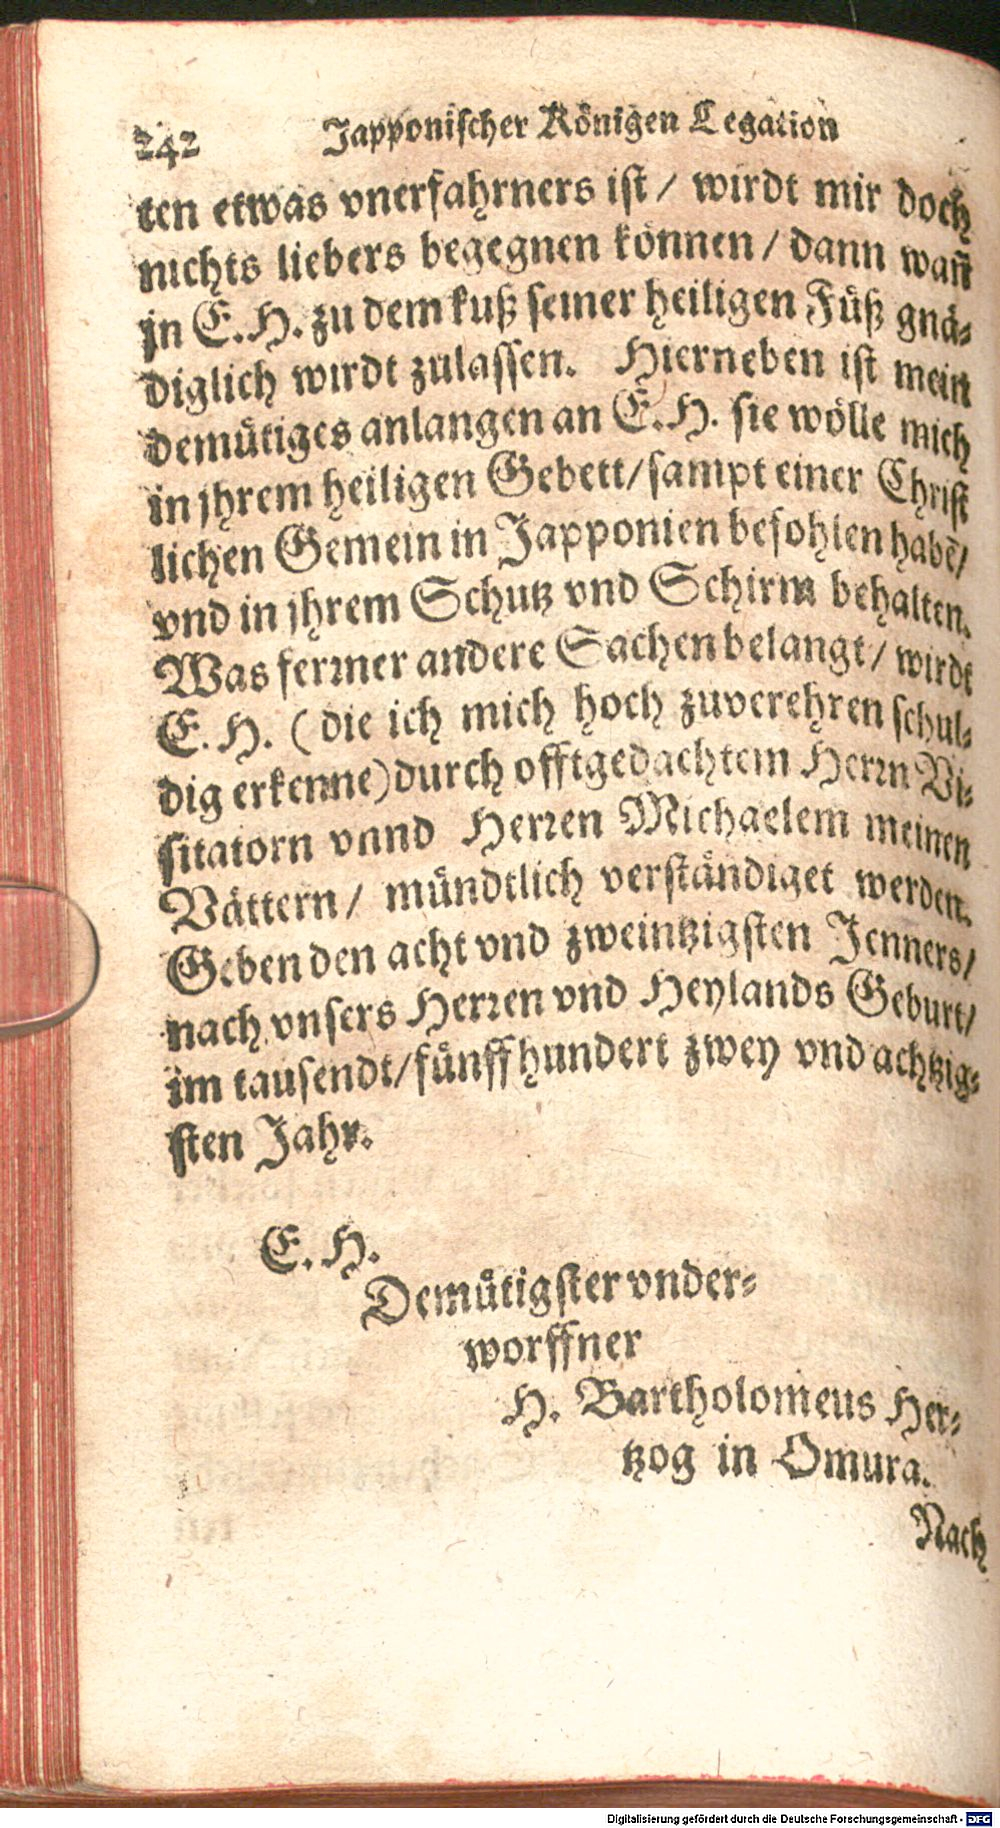 242 Japponischer Königen Legation
ten etwas vnerfahrners ist / wirdt mir doch
nichts liebers begegnen können / dann wañ
jn E. H. zu dem kuß seiner heiligen Füß gnä-
diglich wirdt zulassen. Hierneben ist mein
demütiges anlangen an E. H. sie wölle mich
in jhrem heiligen Gebett / sampt einer Christ
lichen Gemein in Japponien befohlen habẽ /
vnd in jhrem Schutz vnd Schirm behalten.
Was ferrner andere Sachen belangt / wirdt
E. H. (die ich mich hoch zuverehren schul-
dig erkenne) durch offtgedachtem Herrn Vi-
sitatorn vnnd Herren Michaelem meinen
Vättern / mündtlich verständiget werden.
Geben den acht vnd zweintzigsten Jenners /
nach vnsers Herren vnd Heylands Geburt /
im tausendt / fünff hundert zwey vnd achtzig-
sten Jahr.
E. H.
Demütigster vnder-
worffner
H. Bartholomeus Her-
tzog in Omura.
Nach
Digitalisierung gefördert durch die Deutsche Forschungsgemeinschaft - DFG